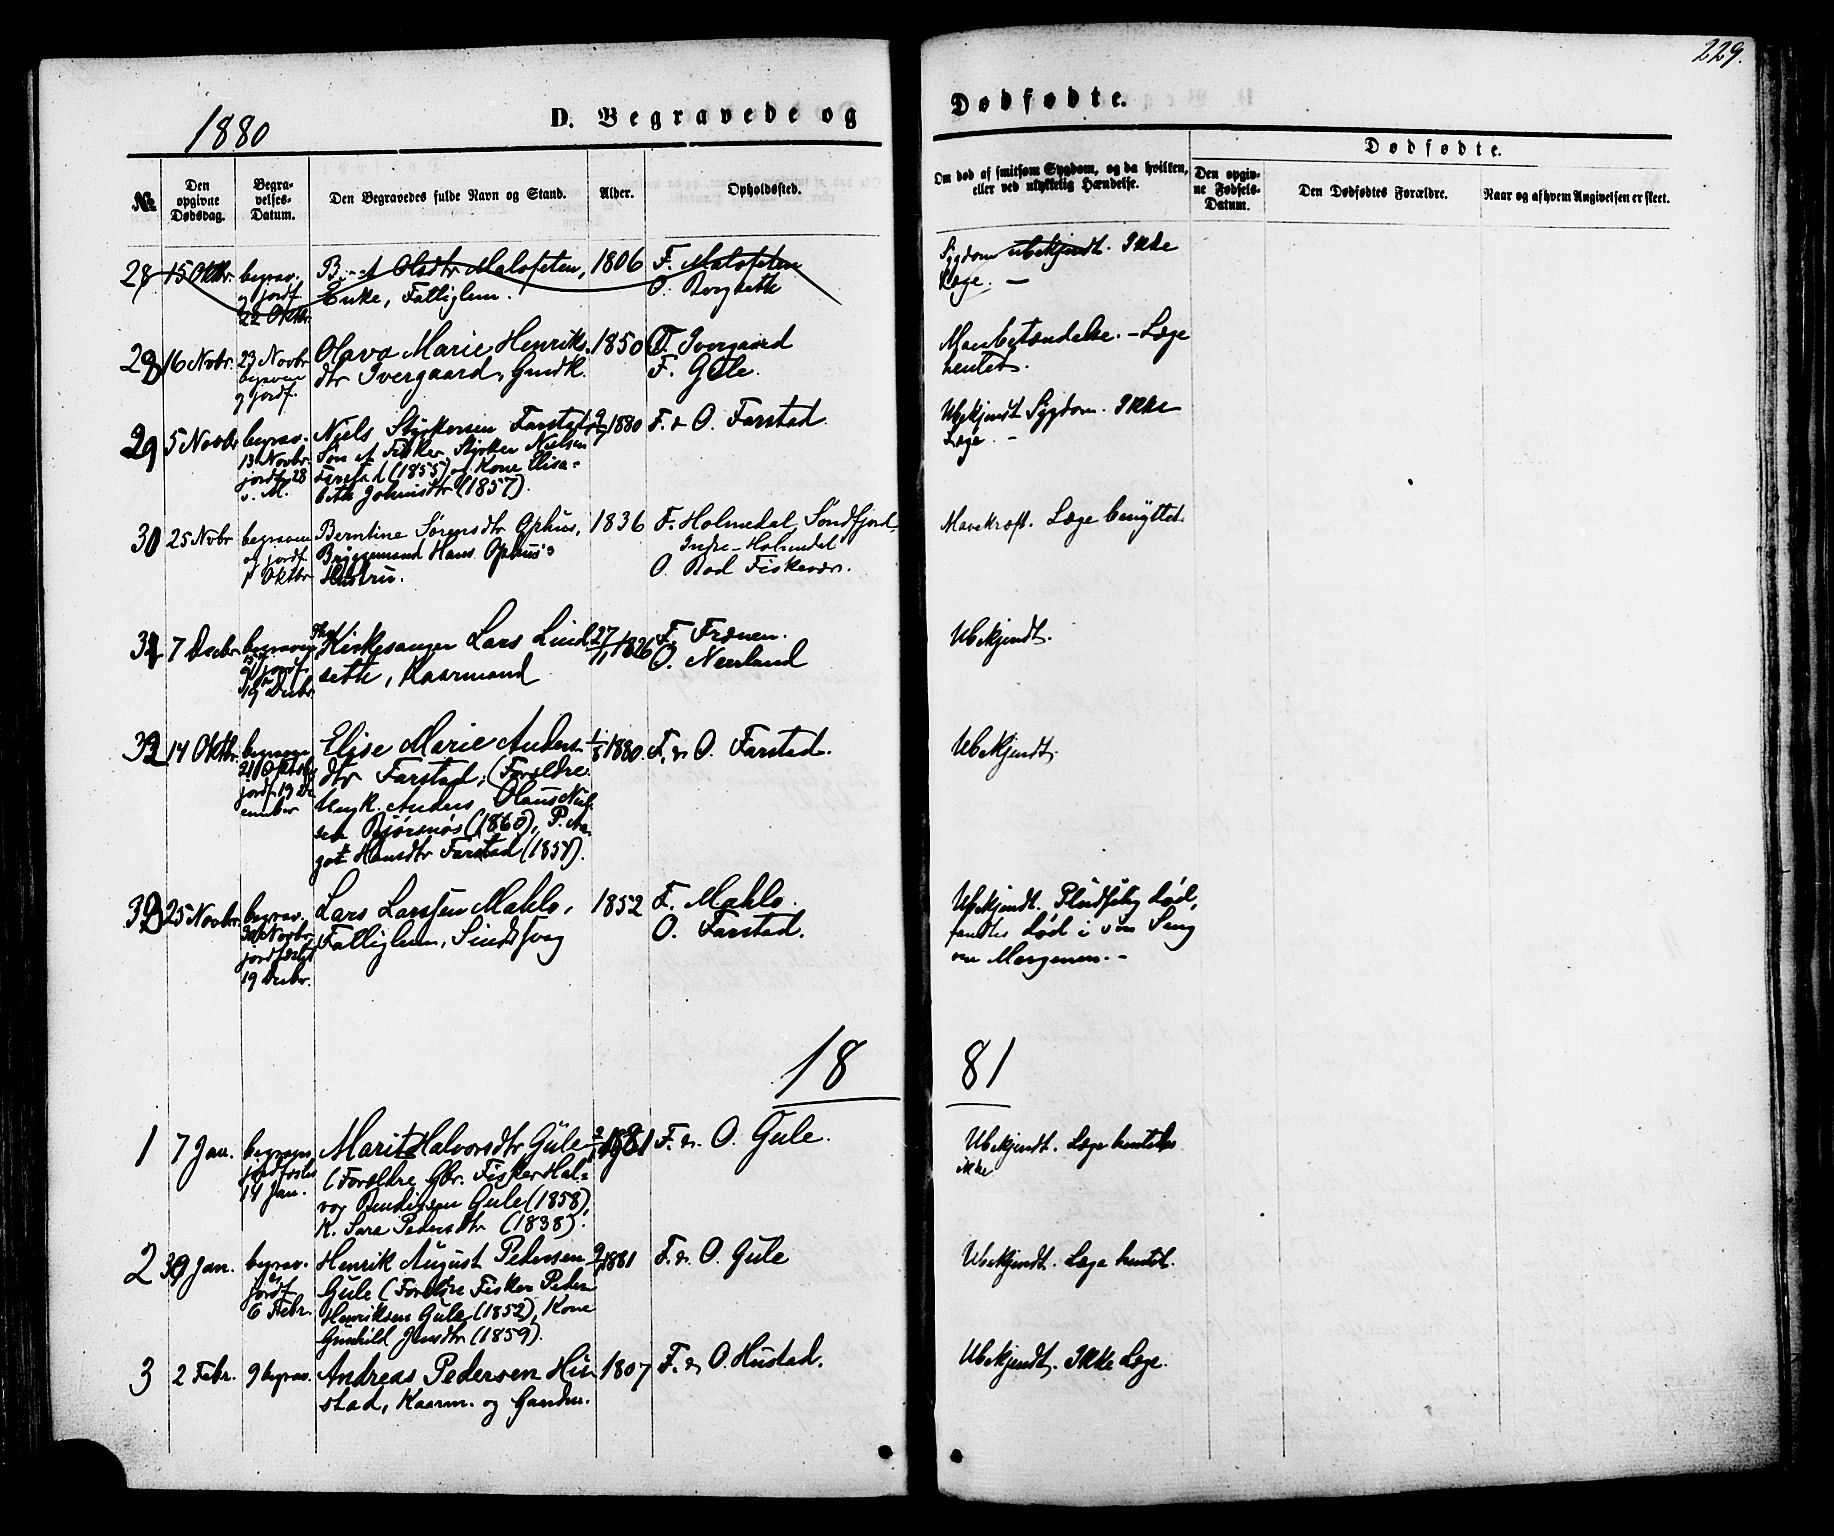 229.
1880
D. Begravede og
Dødfødte.
№
Den opgivne Dødsdag.
Begravelses-Datum.
Den Begravedes fulde Navn og Stand.
Alder.
Opholdssted.
Om død af smitsom Sygdom, og da hvilken,
eller ved ulykkelig Hændelse.
Dødfødte.
Den opgivne Fødsels-Datum.
Den Dødfødtes Forældre.
Naar og af hvem Angivelsen er skeet.
28 15 Oktbr. begrav. Olsdtr Malefeten, 1806 F. Malefeten Sygdom ubekjendt. Ikke
og jordf. Enke, Fattiglem. O. Læge. –
22 Oktbr.
28 16 Novbr. 23 Novbr Olava Marie Henriks- 1850 Ivergaard Mavebetændelse. – Læge
begraven dtr Ivergaard, Gmdk. F. Gule. hentet.
og jordf.
29 5 Novbr begrav. Niels Styrkersen Farstad, 1880 F. & O. Farstad. Ubekjendt Sygdom. Ikke
13 Novbr Søn af Fisker Styrker Nielsen Læge. –
jordf. 28 Farstad (1855) og Kone Elisa-
s. M. beth Johnsdtr (1857).
30 25 Novbr begraven Berntine Sørensdtr Ophus, 1836 F. Holmedal, Søndfjord, Mavekræft. Læge benyttet.
og jordf. Hans Ophus's Indre-Holmedal
Oktbr Hustru. O. Bod Fiskevær.
31 7 Decbr begraven Kirkesanger Lars Lind- 27/11 1826 F. Frænen. Ubekjendt.
og jordf. seth, Kaarmand O. Nerland
19 Decbr.
32 14 Oktbr. begraven Elise Marie Anders- 1880. F. & O. Farstad. Ubekjendt.
21 Oktbr dtr Farstad, (Forældre
jordf. 19 De- Ungk. Anders Olaus Niel-
cember sen Bjørsnøs (1860), P. Ma-
got Hansdtr Farstad (1857).
33 25 Novbr begrav. Lars Larssen Mahlo, 1852 F. Mahlo. Ubekjendt. Pludselig død,
30 Novbr Fattiglem, Sindssvag O. Farstad. fandtes død i sin Seng
jordfæstet om Morgenen. –
19 Decbr.
18 81
1 7 Jan. begraven Marit Halvorsdtr Gule 1881 F. & O. Gule. Ubekjendt. Læge hentedes
jordfæstet (Forældre Gbr. Fisker Hal- ikke
14 Jan. vor Bendiksen Gule (1858),
K. Sara Pedersdtr (1838).
2 30 Jan. begrav. Henrik August Pedersen 1881 F. & O. Gule Ubekjendt. Læge hentet.
og jordf. Gule (Forældre Fisker Peder
6 Febr. Henriksen Gule (1852), Kone
Gunhild Jensdtr (1859).
3 2 Febr. 9 begrav. Andreas Pedersen Hu- 1807 F. & O. Hustad. Ubekjendt. Ikke Læge.
stad, Kaarm. og